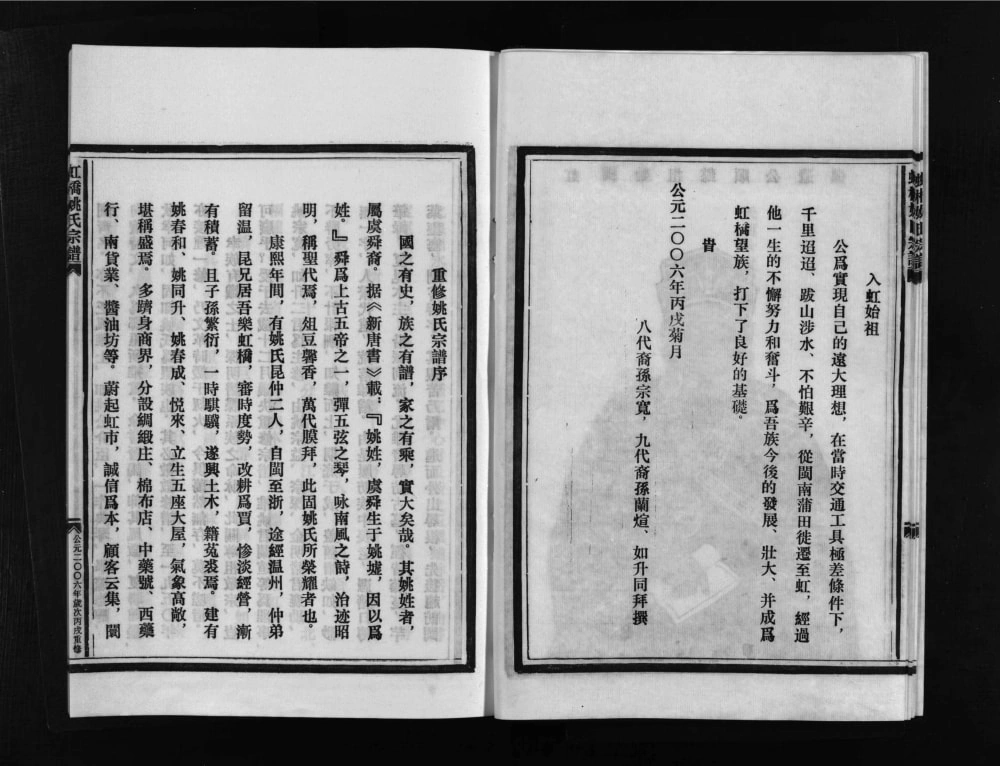 入虹始祖
公爲實現自己的遠大理想，在當時交通工具極差條件下，
千里迢迢、跋山涉水、不怕艱辛，從閩南蒲田徙遷至虹，經過
他一生的不懈努力和奮斗，爲吾族今後的發展、壯大、并成爲
虹橋望族，打下了良好的基礎。
旹
公元二〇〇六年丙戌菊月
八代裔孫宗寬，九代裔孫蘭煊、如升同拜撰
重修姚氏宗譜序
國之有史，族之有譜，家之有乘，實大矣哉。其姚姓者，
屬虞舜裔。据《新唐書》載：『姚姓，虞舜生于姚墟，因以爲
姓。』舜爲上古五帝之一，彈五弦之琴，咏南風之詩，治迹昭
明，稱聖代焉，俎豆馨香，萬代膜拜，此固姚氏所榮耀者也。
康熙年間，有姚氏昆仲二人，自閩至浙，途經温州，仲弟
留温，昆兄居吾樂虹橋，審時度勢，改耕爲賈，慘淡經營，漸
有積蓄。且子孫繁衍，一時騏驥，遂興土木，籍菟裘焉。建有
姚春和、姚同升、姚春成、悦來、立生五座大屋，氣象高敞，
堪稱盛焉。多躋身商界，分設綢緞庄、棉布店、中藥號、西藥
行、南貨業、醬油坊等。蔚起虹市，誠信爲本，顧客云集，闤
虹橋姚氏宗譜
公元二〇〇六年歲次丙戌重修